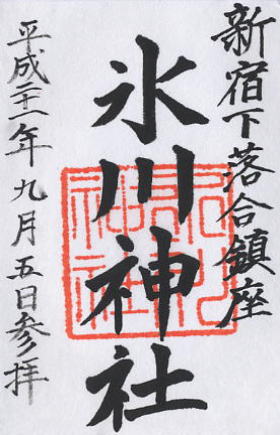 新宿下落合鎮座
氷川神社
平成二十一年九月五日参拝